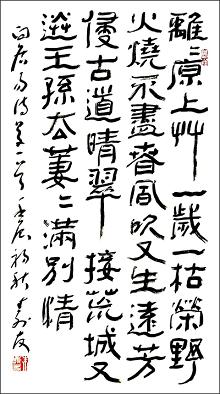 離〻原上艸一歲一枯榮野
火燒不盡春風吹又生遠芳
侵古道晴翠接荒城又
送王孫去萋〻滿別情
白居易詩草一首壬辰初秋